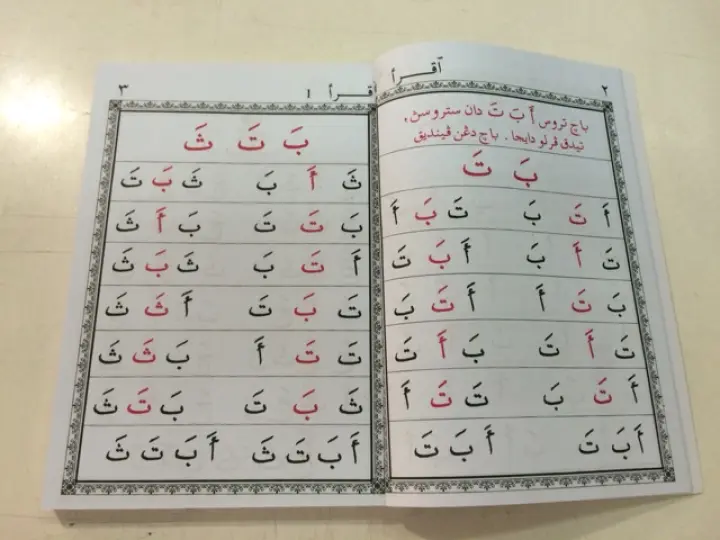 ٢ اقرأ
باچ تروس أَ بَ تَ دان ستروسڽ،
تيدق ڤرلو دايجا. باچ دڠن ڤينديق
بَ تَ
أَ تَ بَ تَ بَ أَ
تَ أَ بَ أَ بَ تَ
بَ تَ أَ أَ تَ بَ
تَ أَ تَ بَ أَ تَ
أَ تَ بَ تَ تَ أَ
أَ بَ تَ أَ بَ تَ
اقرأ ١ ٣
بَ تَ ثَ
ثَ أَ بَ ثَ بَ تَ
بَ تَ تَ بَ أَ ثَ
أَ تَ بَ ثَ بَ ثَ
تَ بَ تَ أَ ثَ ثَ
تَ تَ أَ بَ ثَ ثَ
ثَ بَ تَ بَ تَ ثَ
أَ بَ تَ ثَ أَ بَ تَ ثَ